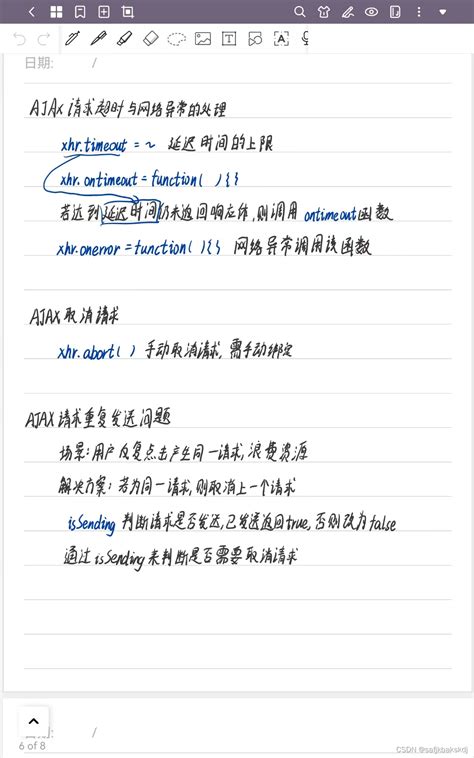 日期: /
AJAX 请求超时与网络异常的处理
xhr.timeout = ~ 延迟时间的上限
xhr.ontimeout = function( ){}
若达到延迟时间仍未返回响应体,则调用 ontimeout函数
xhr.onerror = function( ){} 网络异常调用该函数
AJAX 取消请求
xhr.abort( ) 手动取消请求, 需手动绑定
AJAX 请求重复发送问题
场景:用户反复点击产生同一请求,浪费资源
解决方案: 若为同一请求,则取消上一个请求
isSending 判断请求是否发送,已发送返回true, 否则改为false
通过 isSending来判断是否需要取消请求
日期: /
6 of 8
CSDN @safjkbakskdj